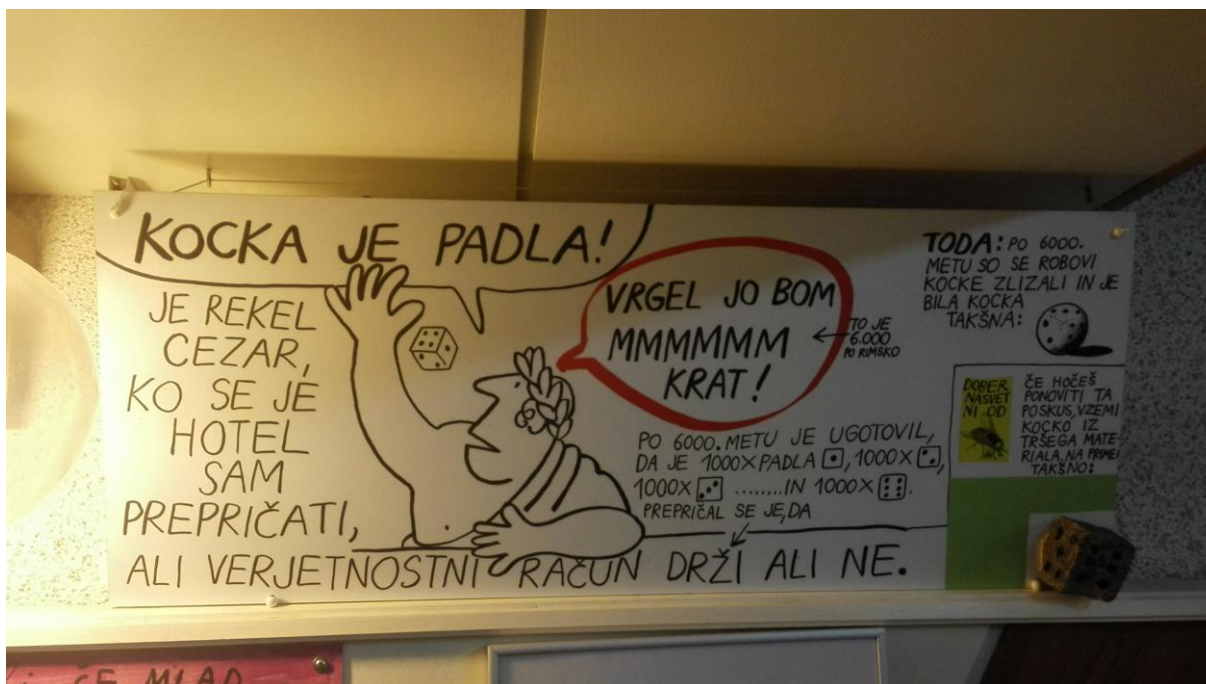 KOCKA JE PADLA!
JE REKEL
CEZAR,
KO SE JE
HOTEL
SAM
PREPRIČATI,
ALI VERJETNOSTNI RAČUN DRŽI ALI NE.
VRGEL JO BOM
MMMMMM
KRAT!
TO JE
6.000
PO RIMSKO
PO 6000. METU JE UGOTOVIL,
DA JE 1000X PADLA , 1000X ,
1000X ........ IN 1000X .
PREPRIČAL SE JE, DA
TODA: PO 6000.
METU SO SE ROBOVI
KOCKE ZLIZALI IN JE
BILA KOCKA
TAKŠNA:
DOBER
NASVET
NI OD
ČE HOČEŠ
PONOVITI TA
POSKUS, VZEMI
KOCKO IZ
TRŠEGA MATE-
RIALA, NA PRIMER
TAKŠNO:
ČE MLAD